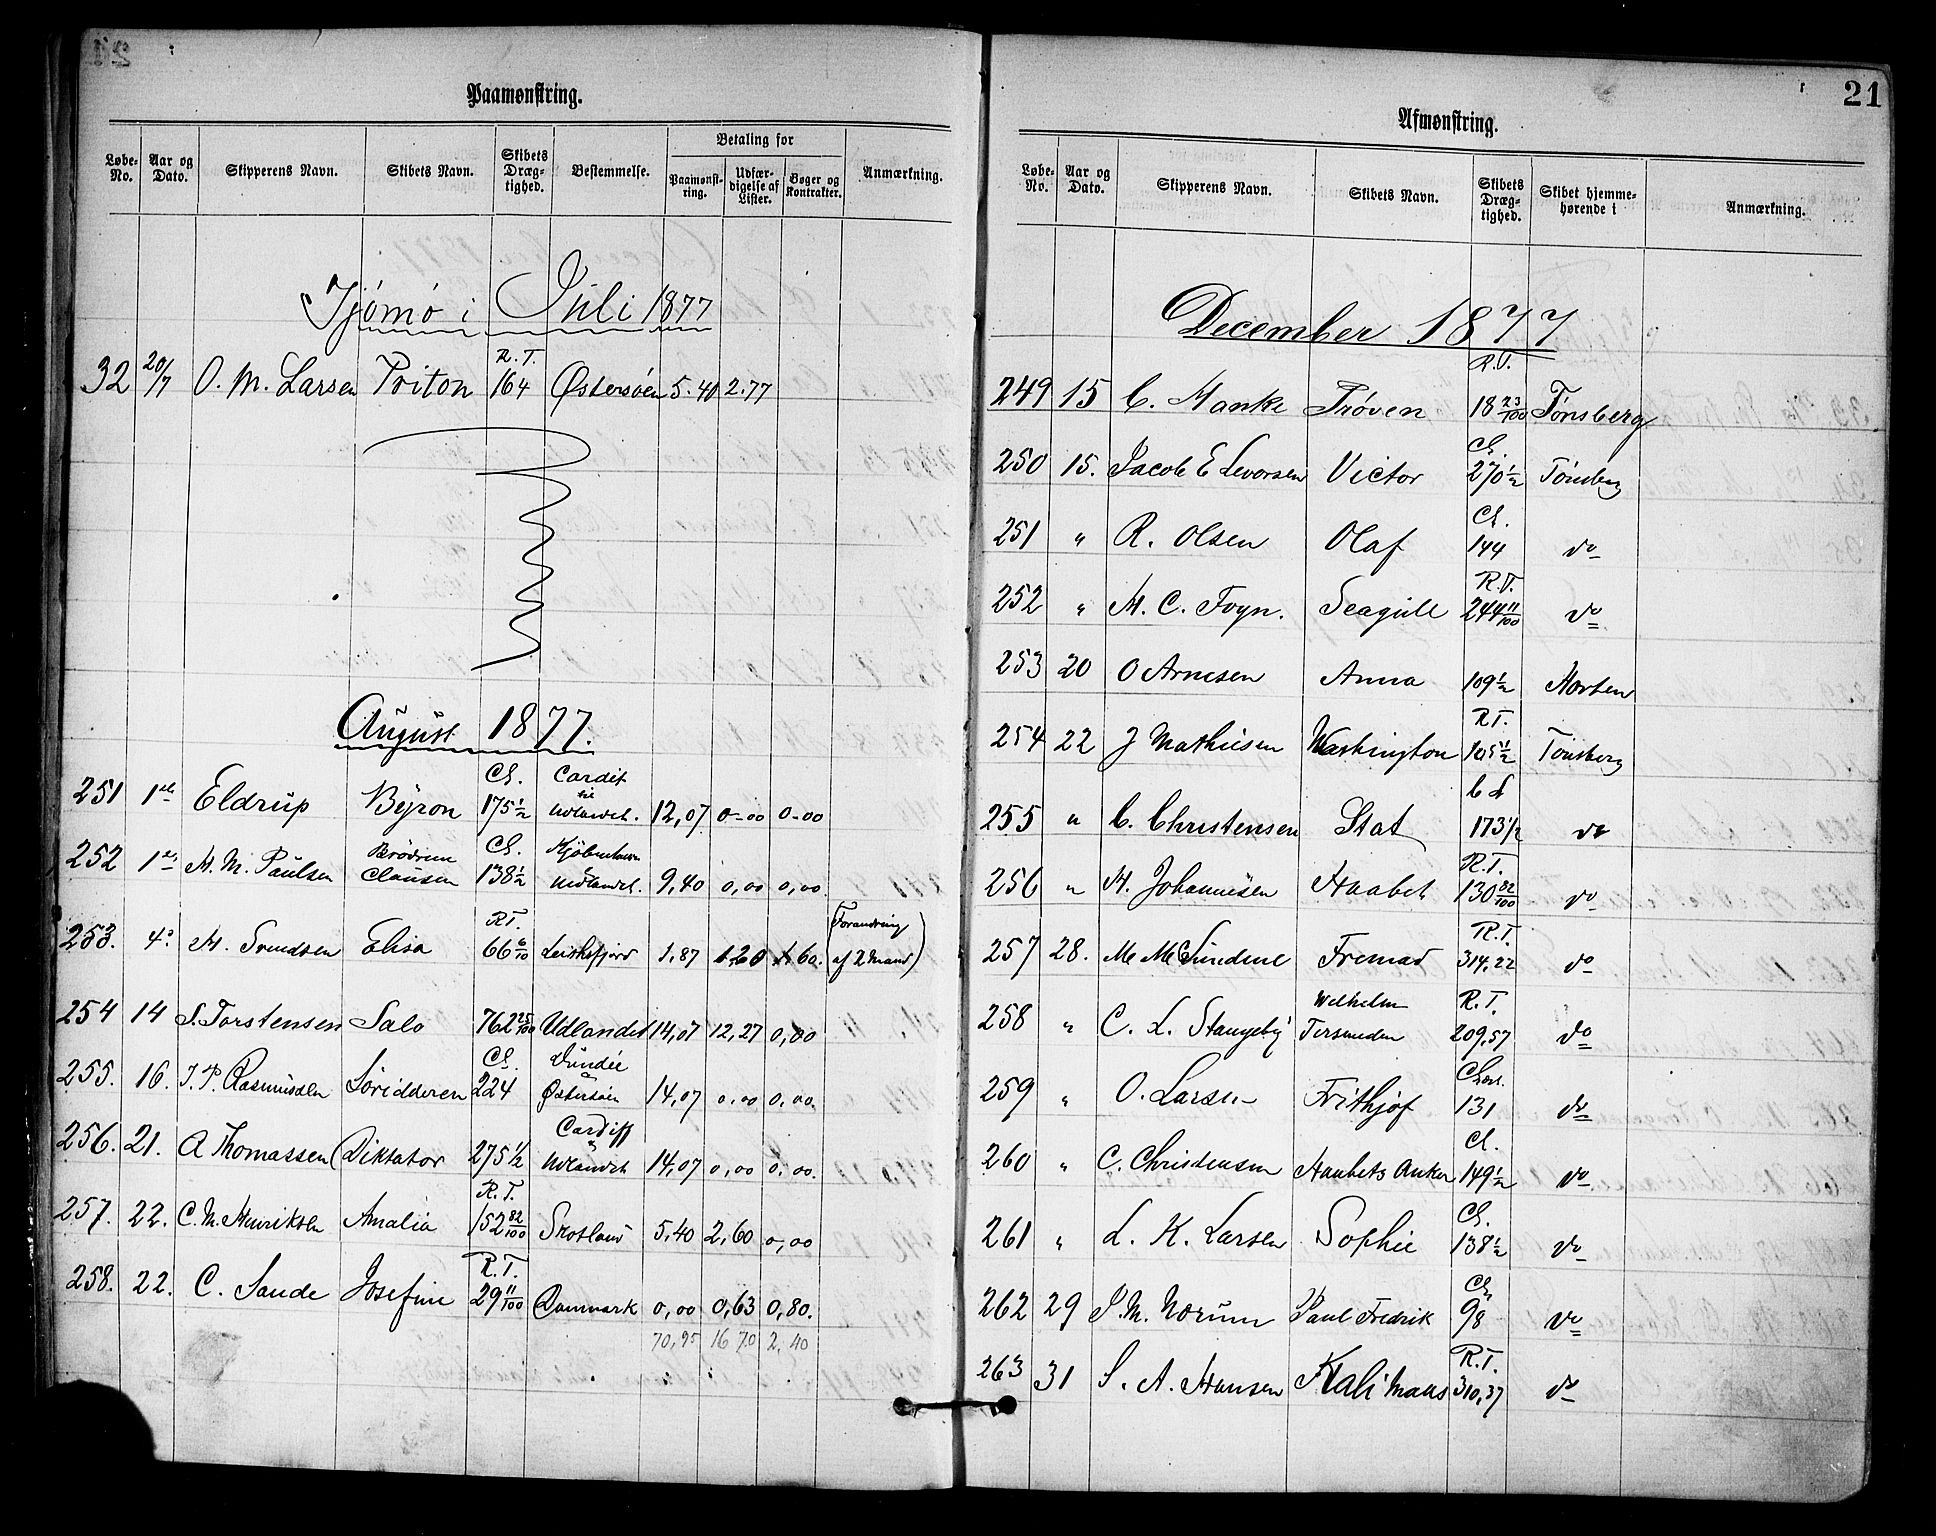 21
Paamønstring.
Løbe-No. | Aar og Dato. | Skipperens Navn. | Skibets Navn. | Skibets Dræg-tighed. | Bestemmelse. | Betaling for | Paamønst-ring. | Udfær-digelse af Lister. | Bøger og Kontrakter. | Anmærkning.
Tjömö i Juli 1877
32 20/7 O. M. Larsen Triton R.T. 164 Østersøen 5.40 2.77
August 1877.
251 1ste Eldrup Byron Cl. 175 1/2 Cardif til Udlandet. 12,07 0-00 0-00
252 1ste M. M. Paulsen Brödrene Clausen Cl. 138 1/2 Kjöbenhavn Udlandet. 9,40 0,00 0,00.
253. 4de M. Svendsen Elisa RT. 66 6/10 1,87 1,20 1,60. (Forandring af 2 Mand)
254 14 S. Torstensen Salo 762 25/100 Udlandet 14,07 12,27 0,00
255. 16. J. P. Rasmussen Söridderen Cl. 224 Dundee Østersöen 14,07 0,00 0,00.
256. 21. A Thomassen Diktator 275 1/2 Cardiff Udlandet 14,07 0,00 0,00.
257. 22. C. M. Henriksen Amalia R.T. 152 82/100 Skotland 5,40 2,60 0,00
258. 22. C. Sande Josefine R.T. 29 11/100 Danmark 0,00 0,63 0,80.
70,95 16 70 2,40
Afmønstring.
Løbe-No. | Aar og Dato. | Skipperens Navn. | Skibets Navn. | Skibets Dræg-tighed. | Skibet hjemme-hørende i | Anmærkning.
December 1877
249 15 C. Manke Pröven R.T. 18 23/100 Tönsberg
250 15. Jacob E Levorsen Victor Cl. 270 1/2 Tönsberg
251 " R. Olsen Olaf Cl. 144 do
252 " M. C. Foyn. Seagull R.T. 244 11/100 do
253 20 O Arnesen Anna 109 1/2 Horten
254 22 J Mathisen Washington R.T. 105 1/2 Tönsberg
255 " C. Christensen Stat Cl 173 1/2 do
256 " M. Johannesen Haabet R.T. 130 82/100 do
257 28. Fremad R.T. 314,22 do
258 " C. L. Stangeby Wilhelm R.T. 209,57 do
259 " O. Larsen Frithjof Coml. 131 do
260 " C. Christensen Haabets Anker Cl. 149 1/2 do
261 " L. K. Larsen Sophie Cl. 138 1/2 do
262 29 J. M. Norum Paul Fredrik Cl. 98 do
263 31 S. A. Hansen Kali Maas R.T. 310,37 do